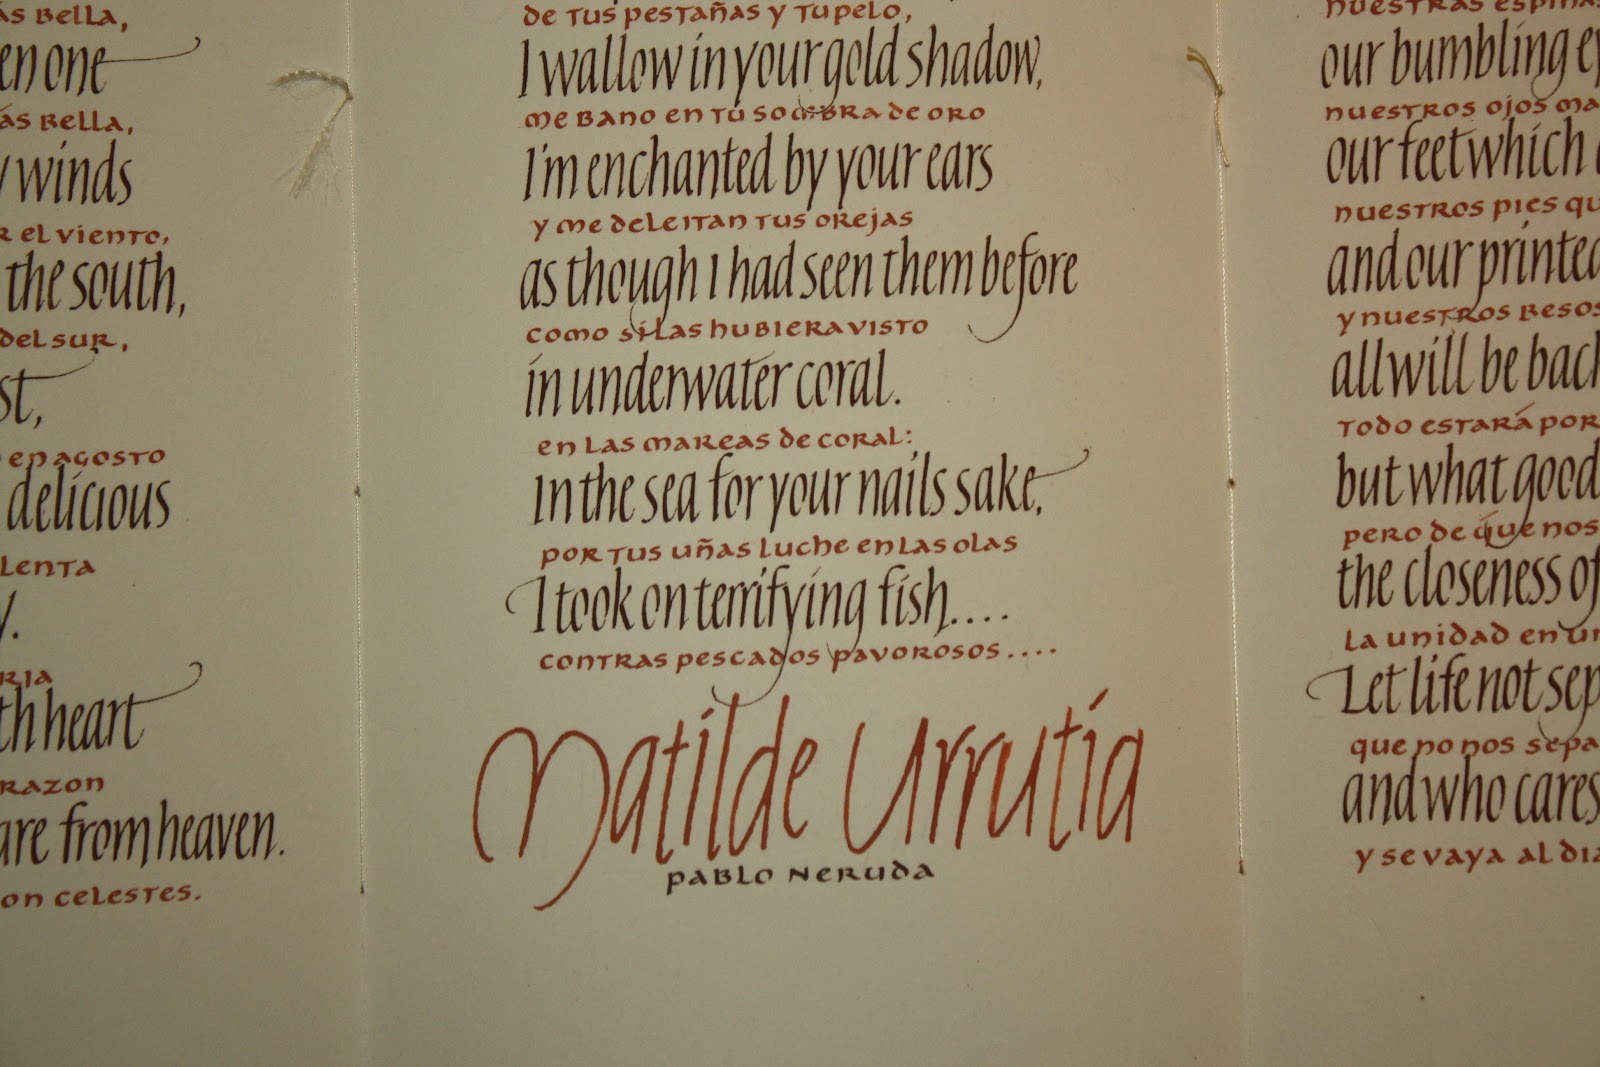 ás bella,
en one
ás bella,
winds
r el viento,
the south,
del sur,
st,
en agosto
delicious
lenta
y.
ria
th heart
razon
are from heaven.
on celestes.
de tus pestañas y tu pelo,
I wallow in your gold shadow,
me bano en tu sombra de oro
I'm enchanted by your ears
y me deleitan tus orejas
as though I had seen them before
como si las hubiera visto
in underwater coral.
en las mareas de coral:
In the sea for your nails sake,
por tus uñas luche en las olas
I took on terrifying fish....
contras pescados pavorosos....
Matilde Urrutia
Pablo Neruda
nuestras espinas
our bumbling ey
nuestros ojos ma
our feet which
nuestros pies qu
and our printed
y nuestros besos
all will be back
todo estará por
but what good
pero de que nos
the closeness of
la unidad en un
Let life not sep
que no nos sepa
and who cares
y se vaya al dia